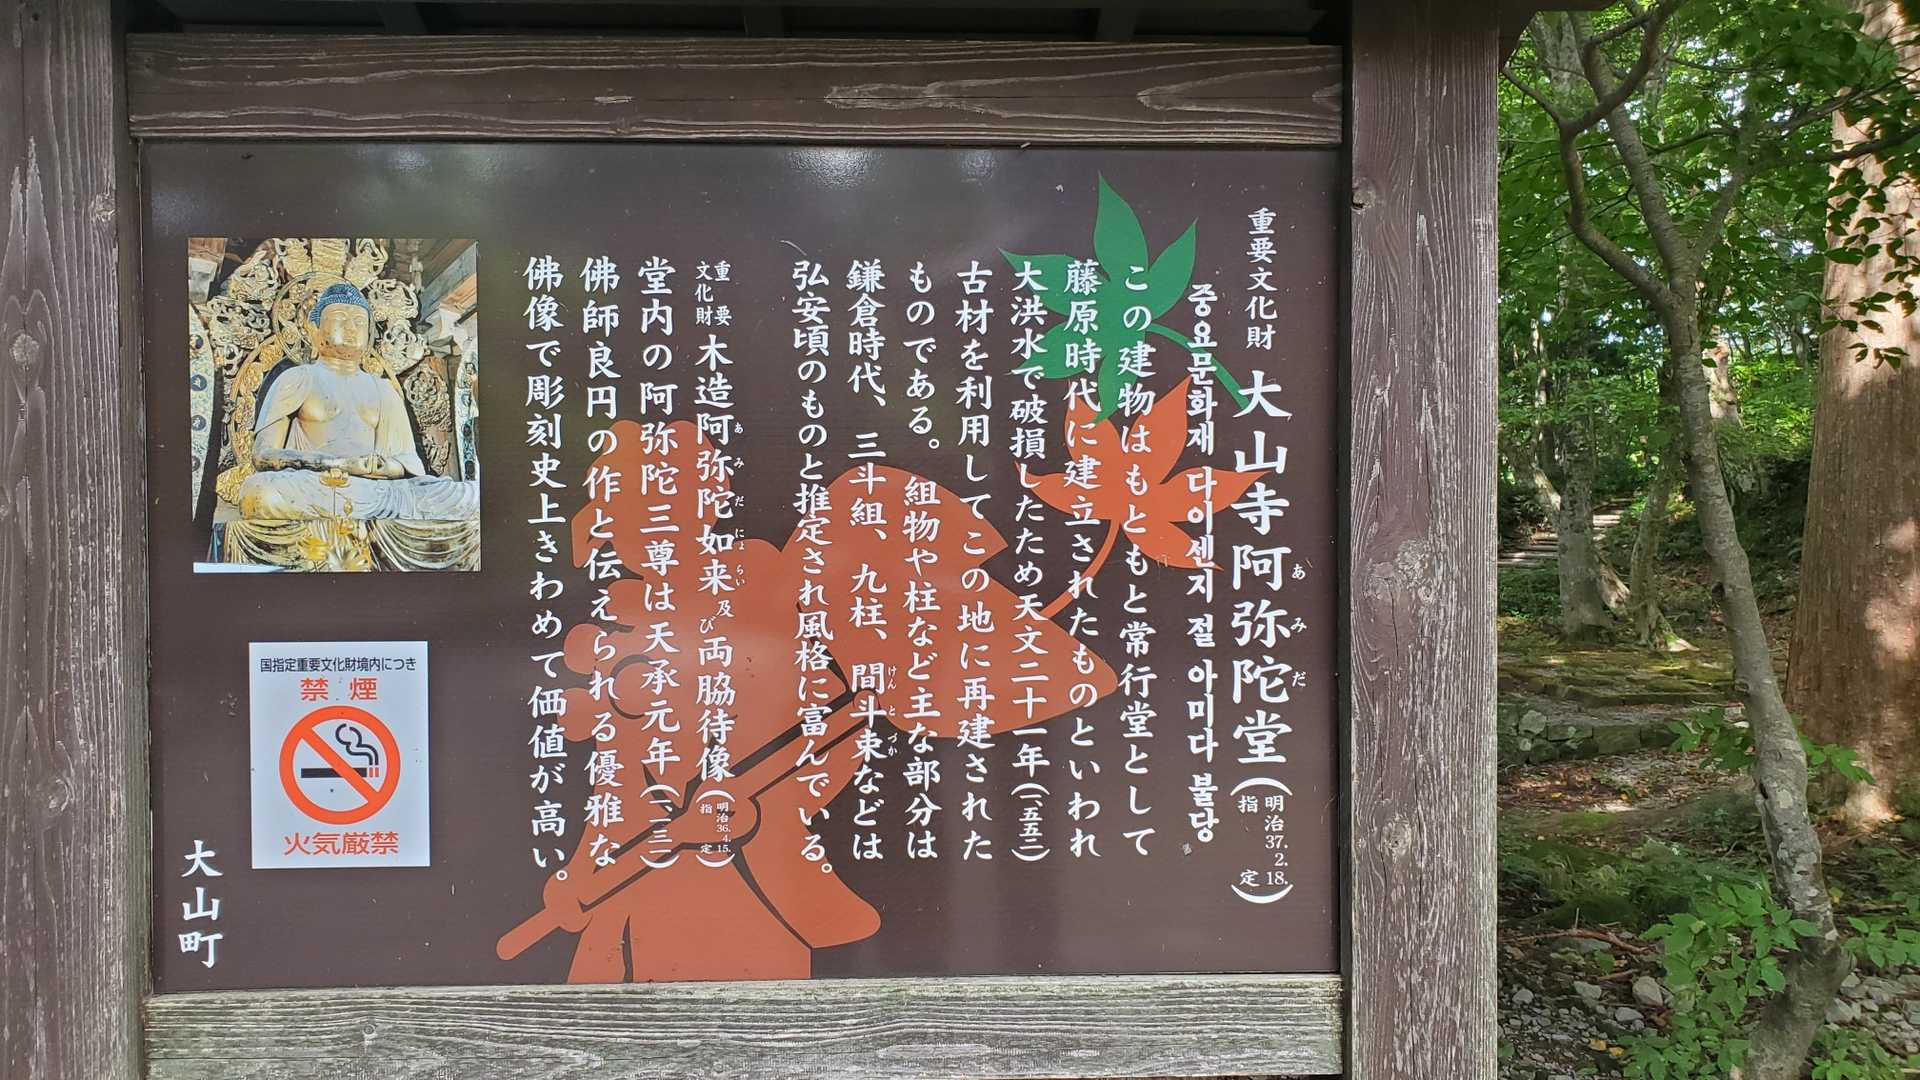 重要文化財 大山寺阿弥陀堂(明治37.2.18.指定)
あみだ
중요문화재 다이센지 절 아미다 불당
この建物はもともと常行堂として
藤原時代に建立されたものといわれ
大洪水で破損したため天文二十一年(一、五五二)
古材を利用してこの地に再建された
ものである。組物や柱など主な部分は
鎌倉時代、三斗組、九柱、間斗束などは
けんとづか
弘安頃のものと推定され風格に富んでいる。
重要文化財 木造阿弥陀如来及び両脇待像(明治36.4.15.指定)
あみだにょらい
堂内の阿弥陀三尊は天承元年(一、一三一)
佛師良円の作と伝えられる優雅な
佛像で彫刻史上きわめて価値が高い。
国指定重要文化財境内につき
禁煙
火気厳禁
大山町